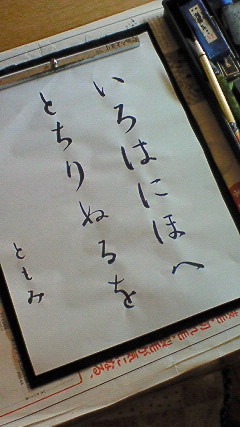 いろはにほへ
とちりぬるを
ともみ